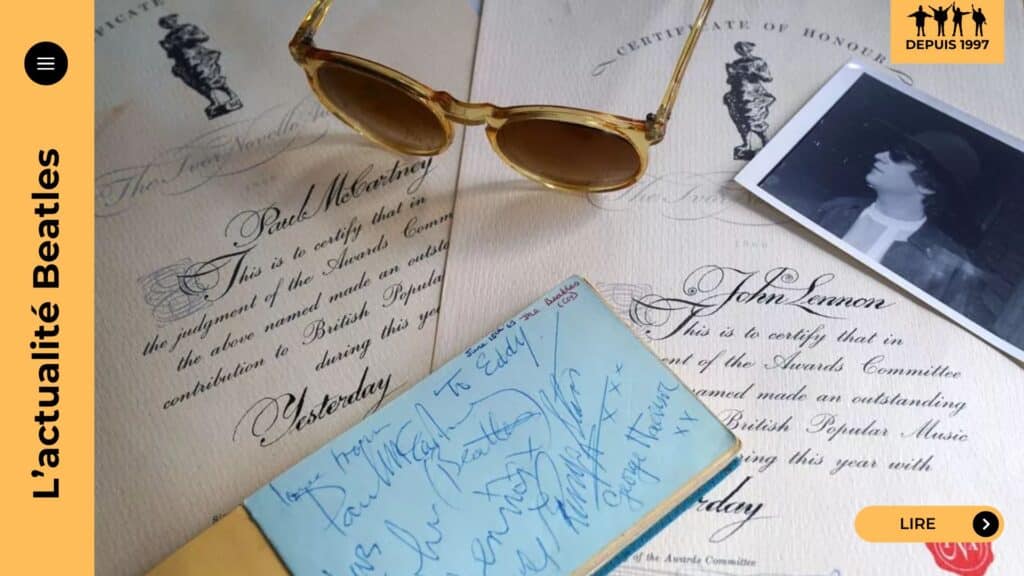 L'actualité Beatles
DEPUIS 1997
CERTIFICATE
The Ivor Novello
Paul McCartney
This is to certify that in
the judgment of the Awards Comm
the above named made an outsta
contribution to British Popula
during this ye
Yesterday
CERTIFICATE OF HONOUR
The Ivor
John Lennon
This is to certify that in
ent of the Awards Committee
named made an outstanding
British Popular Music
ring this year with
rday
of the Awards Committee
The Beatles
To Eddy.
Love from
Paul McCartney
(Beatles)
xxx
George Harrison
xx
LIRE